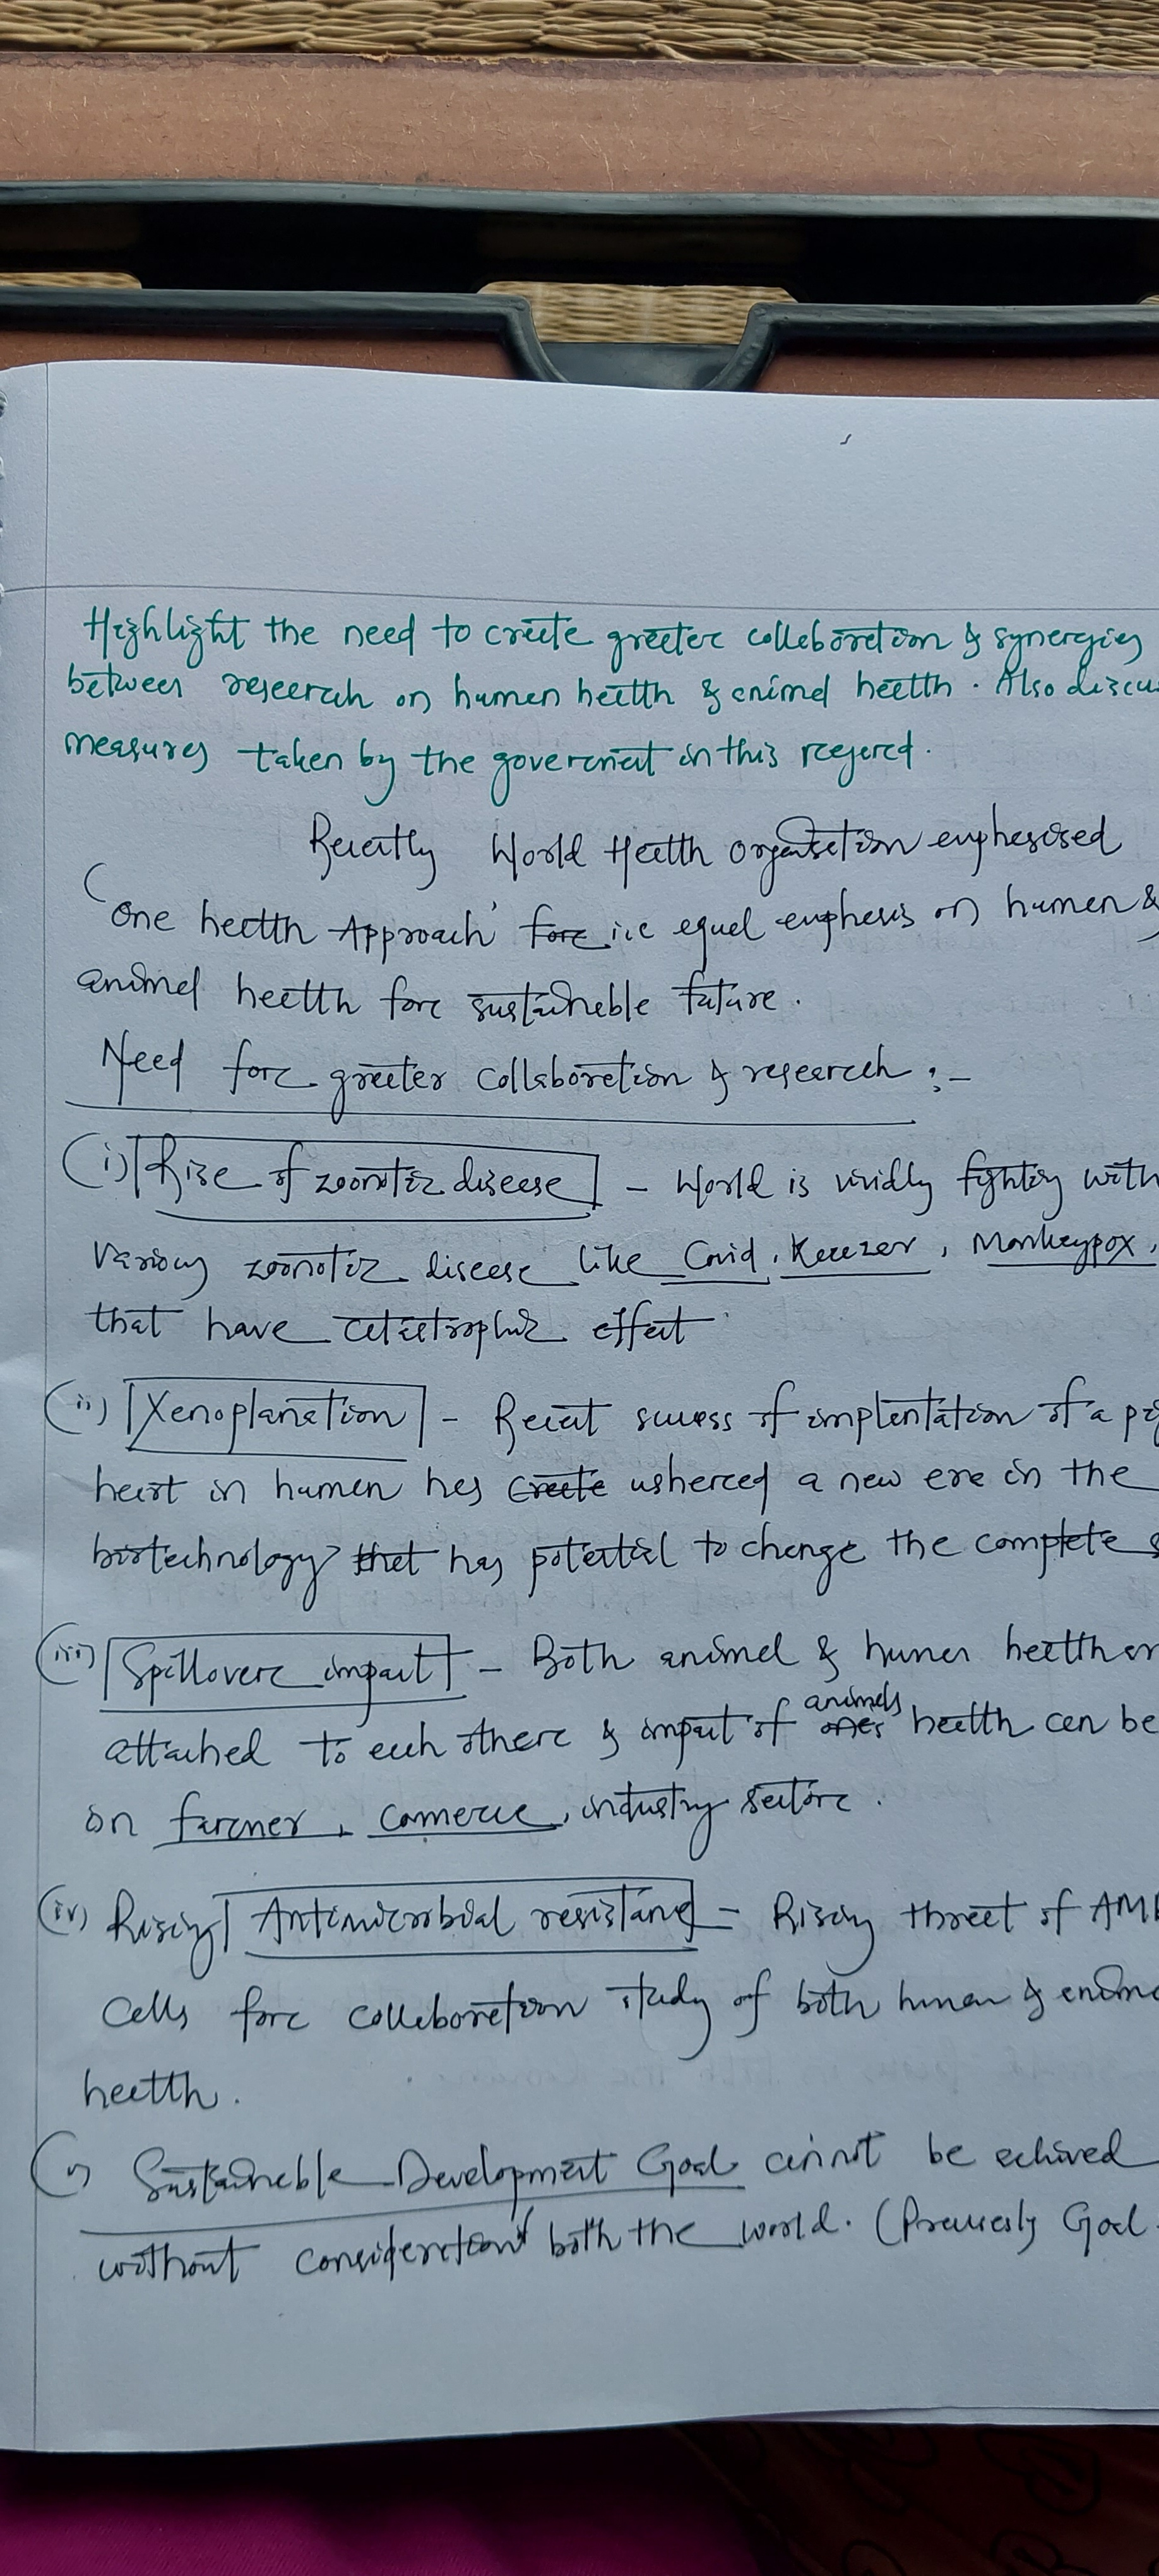 Highlight the need to create greater collaboration & synergies
between research on human health & animal health. Also discu
measures taken by the government in this regard.
Recently World Health Organisation emphasised
'One health Approach' for i.e equal emphasis on human &
animal health for sustainable future.
Need for greater collaboration & research :-
(i) Rise of zoonotic disease - World is vividly fighting with
various zoonotic disease like Covid, Monkeypox,
that have catastrophic effect
(ii) Xenoplanation - Recent success of implentation of a pig
heart in human has create ushered a new era in the
biotechnology that has potential to change the complete s
(iii) Spillover impact - Both animal & human health are
attached to each other & impact of ones animals health can be
on farmer, comerce, industry sector.
(iv) Rising Antimicrobial resistance - Rising threat of AMR
calls for collaboration study of both human & anima
health.
(v) Sustainable Development Goal cannot be achived
without consideration both the world. (Precisesly Goal